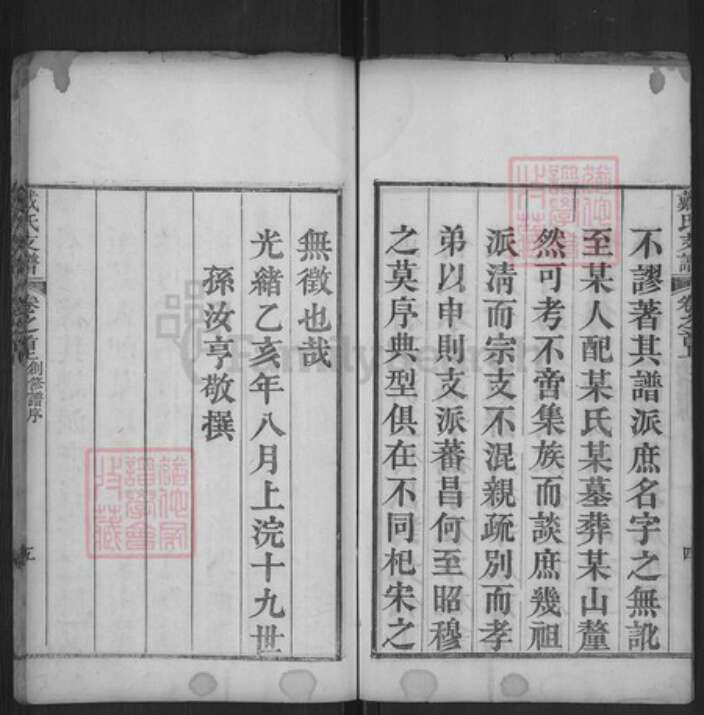 不謬著其譜派庶名字之無訛
至某人配某氏某墓葬某山釐
然可考不啻集族而談庶幾祖
派清而宗支不混親疏別而孝
弟以申則支派蕃昌何至昭穆
之莫序典型俱在不同杞宋之
四
無徵也哉
光緒乙亥年八月上浣十九世
孫汝亨敬撰
戴氏支譜
卷之首上
創修譜序
五
FamilySearch